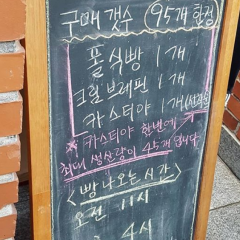 구매 갯수 (95개 한정)
풀 식빵 1개
크림브레핀 1개
카스터야 1개
* 카스터야 한번에
최대 생산량이 45개 입니다
<빵 나오는 시간>
오전 11시
4시